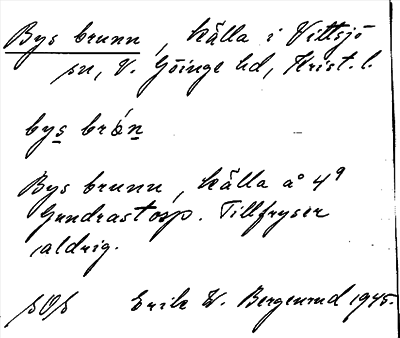 Bys brunn, källa i Vittsjö
sn, V. Göinge hd, Krist. l.
bys brón
Bys brunn, källa å 4⁹
Gundrastorp. Tillfryser
aldrig.
sOs Erik W. Bergenrud 1945.